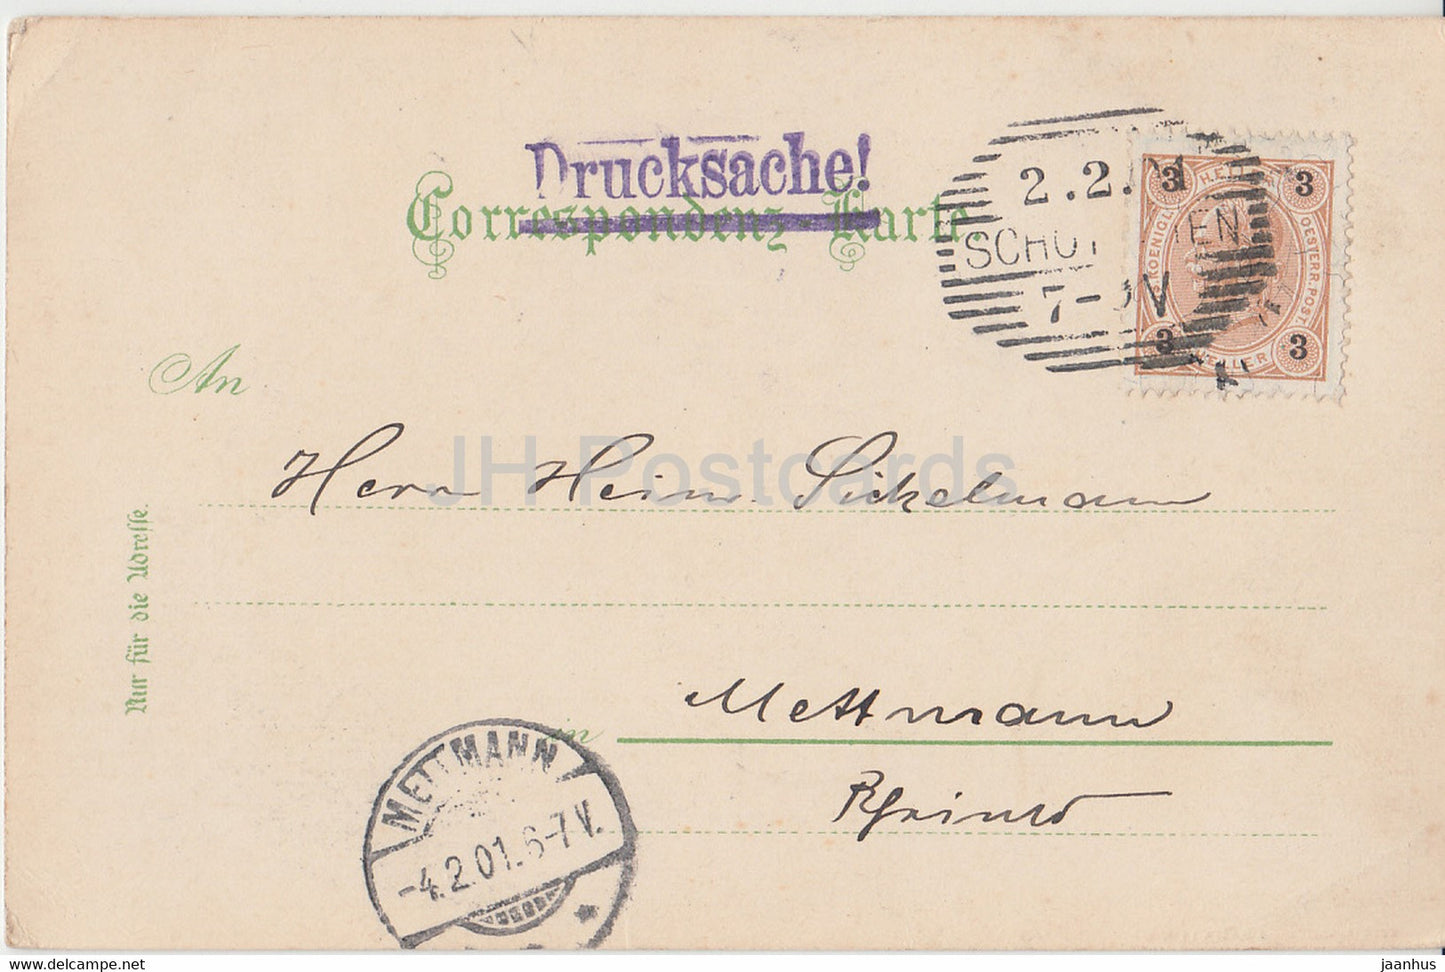 Drucksache!
Correspondenz-Karte.
2.2.
7-
3 3
3 3
OESTERR. POST.
HELLER
An
JH Postcards
Herrn Heinr. Sickelmann
Nur für die Adresse.
Mettmann
in
Rheinld
METTMANN
-4.2.01.6-7V.
www.delcampe.net
jaanhus